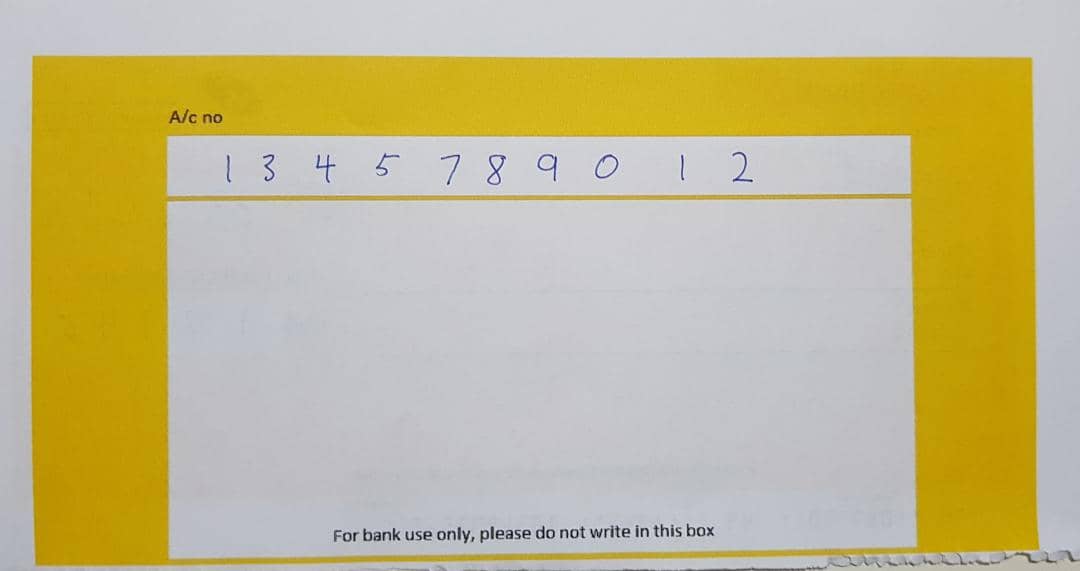 A/c no
1 3 4 5 7 8 9 0 1 2
For bank use only, please do not write in this box